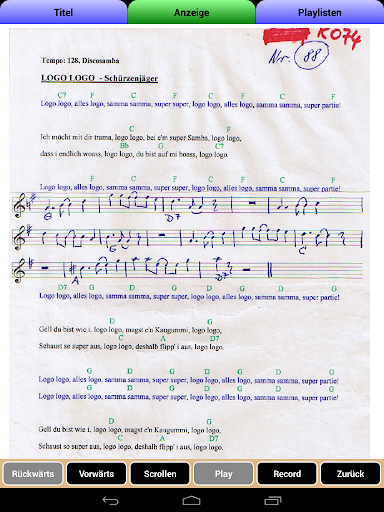 Titel Anzeige Playlisten
K074
Nr. 88
Tempo: 128, Discosamba
LOGO LOGO - Schürzenjäger
C7 F C F C F C F
Logo logo, alles logo, samma samma, super super, logo logo, alles logo, samma samma, super partie!
C F
Ich möcht mit dir trama, logo logo, bei e'm super Samba, logo logo,
Bb G C7
dass i endlich woass, logo logo, du bist auf mi hoass, logo logo.
C F C F C F C F
Logo logo, alles logo, samma samma, super super, logo logo, alles logo, samma samma, super partie!
G D7
G C
A D7
D7 G D G D G D G
Logo logo, alles logo, samma samma, super super, logo logo, alles logo, samma samma, super partie!
D G
Gell du bist wie i, logo logo, magst e'n Kaugummi, logo logo,
C A D7
Schaust so super aus, logo logo, deshalb flipp' i aus, logo logo.
G D G D G D G
Logo logo, alles logo, samma samma, super super, logo logo, alles logo, samma samma, super partie!
G D G D G D G
Logo logo, alles logo, samma samma, super super, logo logo, alles logo, samma samma, super partie!
D G
Gell du bist wie i, logo logo, magst e'n Kaugummi, logo logo,
C A D7
Schaust so super aus, logo logo, deshalb flipp' i aus, logo logo.
Rückwärts Vorwärts Scrollen Play Record Zurück